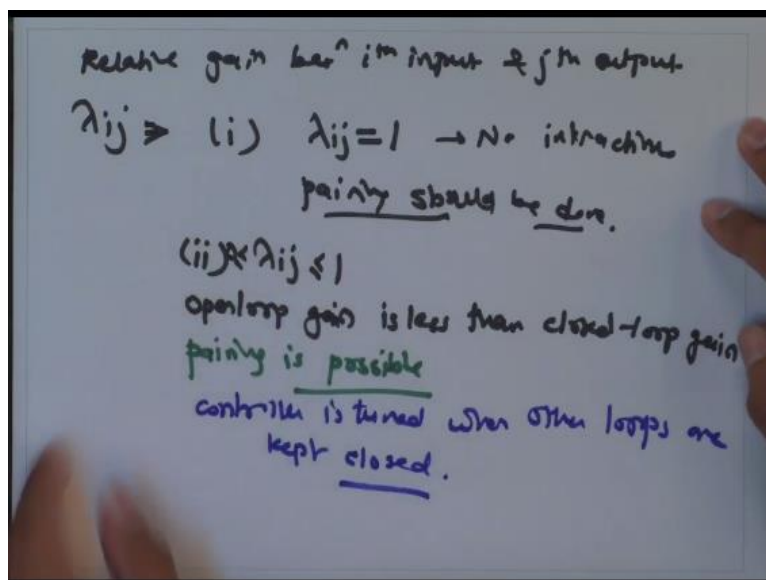 Relative gain betⁿ iᵗʰ input & jᵗʰ output
λij ⇒ (i) λij = 1 → No interaction
pairing should be done.
(ii) λij ≤ 1
openloop gain is less than closed-loop gain
pairing is possible
controller is tuned when other loops are
kept closed.